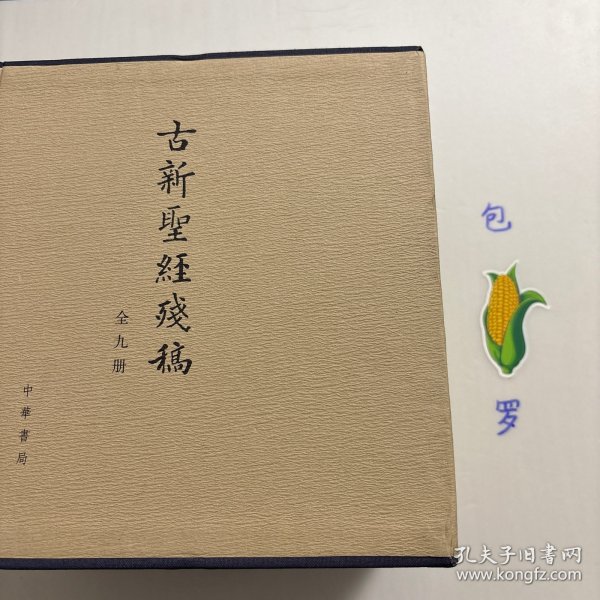 古新聖經殘稿
全九册
中華書局
包
罗
孔夫子旧書网
www.kongfz.com